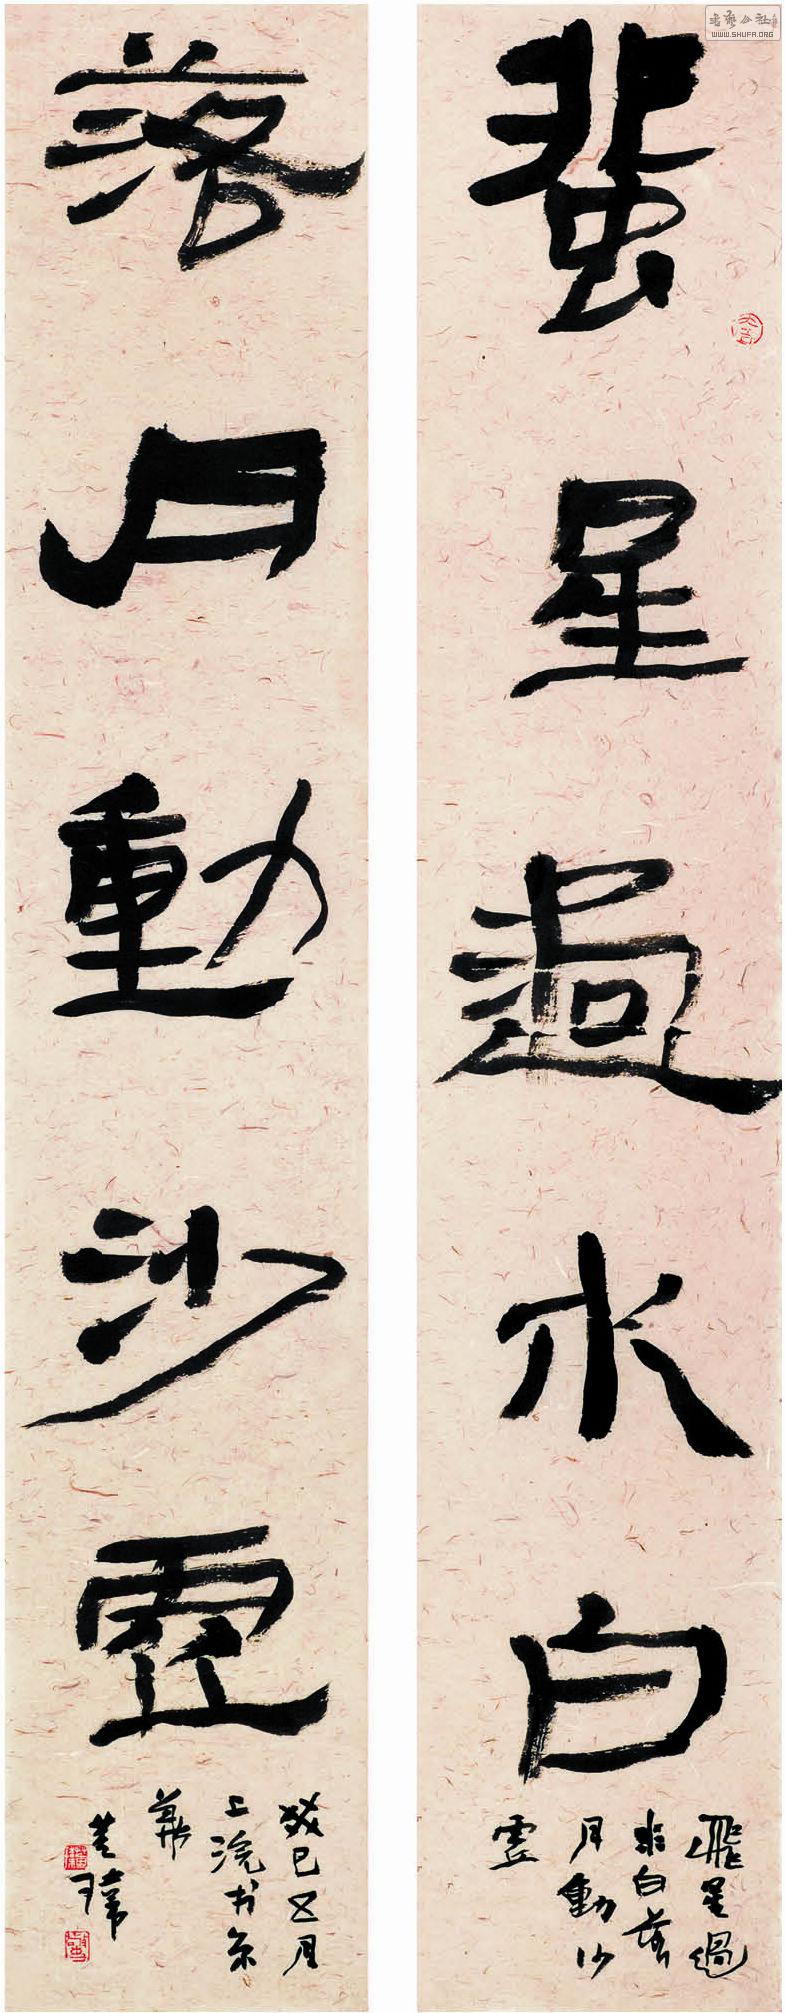 蜚星過水白
飛星過
水白落
月動沙
虛
落月動沙虛
癸巳五月
上浣书京
華
书艺公社
WWW.SHUFA.ORG